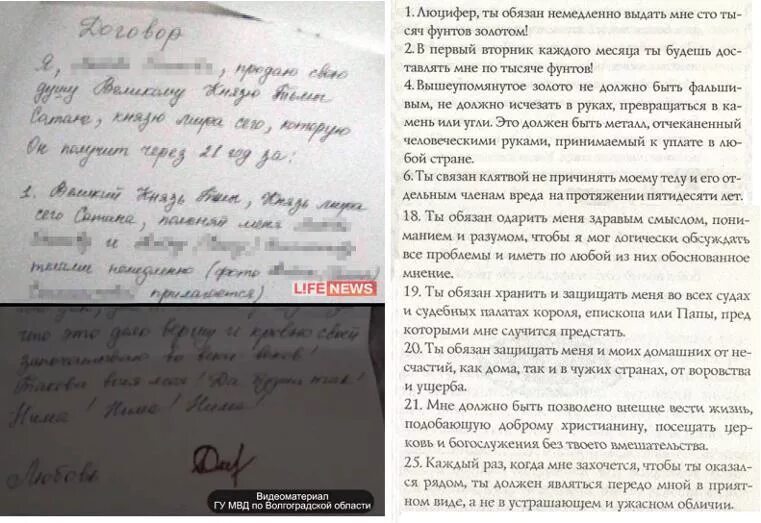 Договор
Я, продаю свою
душу Великому Князю Тьмы
Сатане, князю мира сего, которую
Он получит через 21 год за:
1. Великий Князь Тьмы, Князь мира
сего Сатана, меня
и
телами немедленно (фото
прилагается)
LIFE NEWS
что это дело вершу и кровью своей
запечатляю во веки веков!
Такова воля моя! Да будет так!
Нима! Нима! Нима!
Любовь
Видеоматериал
ГУ МВД по Волгоградской области
1. Люцифер, ты обязан немедленно выдать мне сто ты-
сяч фунтов золотом!
2. В первый вторник каждого месяца ты будешь дос-
тавлять мне по тысяче фунтов!
4. Вышеупомянутое золото не должно быть фальши-
вым, не должно исчезать в руках, превращаться в ка-
мень или угли. Это должен быть металл, отчеканенный
человеческими руками, принимаемый к уплате в лю-
бой стране.
6. Ты связан клятвой не причинять моему телу и его от-
дельным членам вреда на протяжении пятидесяти лет.
18. Ты обязан одарить меня здравым смыслом, пони-
манием и разумом, чтобы я мог логически обсуждать
все проблемы и иметь по любой из них обоснованное
мнение.
19. Ты обязан хранить и защищать меня во всех судах
и судебных палатах короля, епископа или Папы, пред
которыми мне случится предстать.
20. Ты обязан защищать меня и моих домашних от не-
счастий, как дома, так и в чужих странах, от воровства
и ущерба.
21. Мне должно быть позволено внешне вести жизнь,
подобающую доброму христианину, посещать цер-
ковь и богослужения без твоего вмешательства.
25. Каждый раз, когда мне захочется, чтобы ты оказал-
ся рядом, ты должен являться передо мной в прият-
ном виде, а не в устрашающем и ужасном обличии.